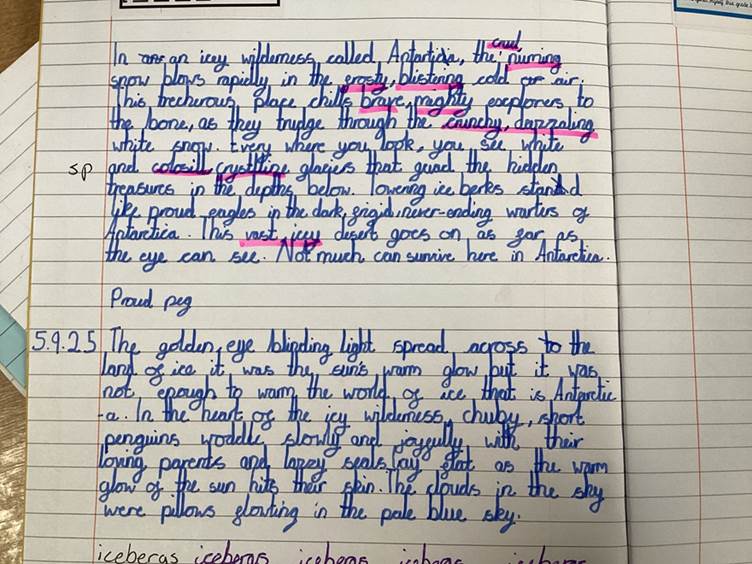 cruel
In an icy wilderness called, Antartidia, the numing
snow blows rapidly in the frosty, blistering cold air.
This trecherous place chills brave, mighty exeplorers to
the bone, as they trudge through the crunchy, dazzaling
white snow. Every where you look, you see white
sp and colosill, crystlline glaciers that guad the hidden
treasures in the depths below. Towering ice berks stand
like proud eagles in the dark, frigid, never-ending warters of
Antarctica. This vast, icey desert goes on as far as
the eye can see. Not much can survive here in Antarctica.
Proud peg
5.9.25 The golden, eye blinding light spread across to the
land of ice it was the sun's warm glow but it was
not enough to warm the world of ice that is Antarctic
-a. In the heart of the icy wilderness, chuby, short
penguins woddle slowly and joyfully with their
loving parents and lazey seals lay flat as the warm
glow of the sun hits their skin. The clouds in the sky
were pillows floating in the pale blue sky.
icebergs icebergs icebergs icebergs icebergs